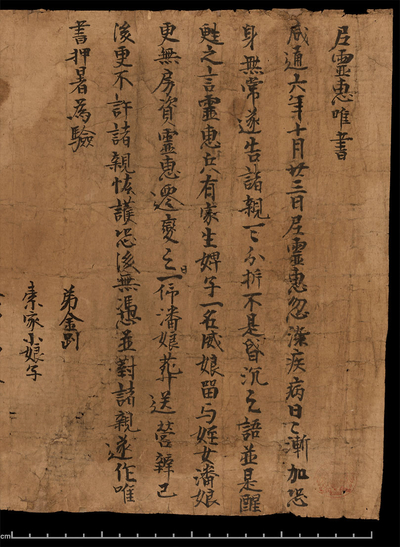 尼靈惠唯書
咸通六年十月廿三日尼靈惠忽染疾病日日漸加恐
身無常遂告諸親一一分析不是昏沉之語並是醒
甦之言靈惠只有家生婢子一名威娘留与姪女潘娘
更無房資靈惠遷變之日一仰潘娘葬送營辦已
後更不許諸親恡護恐後無憑並對諸親遂作唯
書押署為驗
弟金剛
索家小娘子